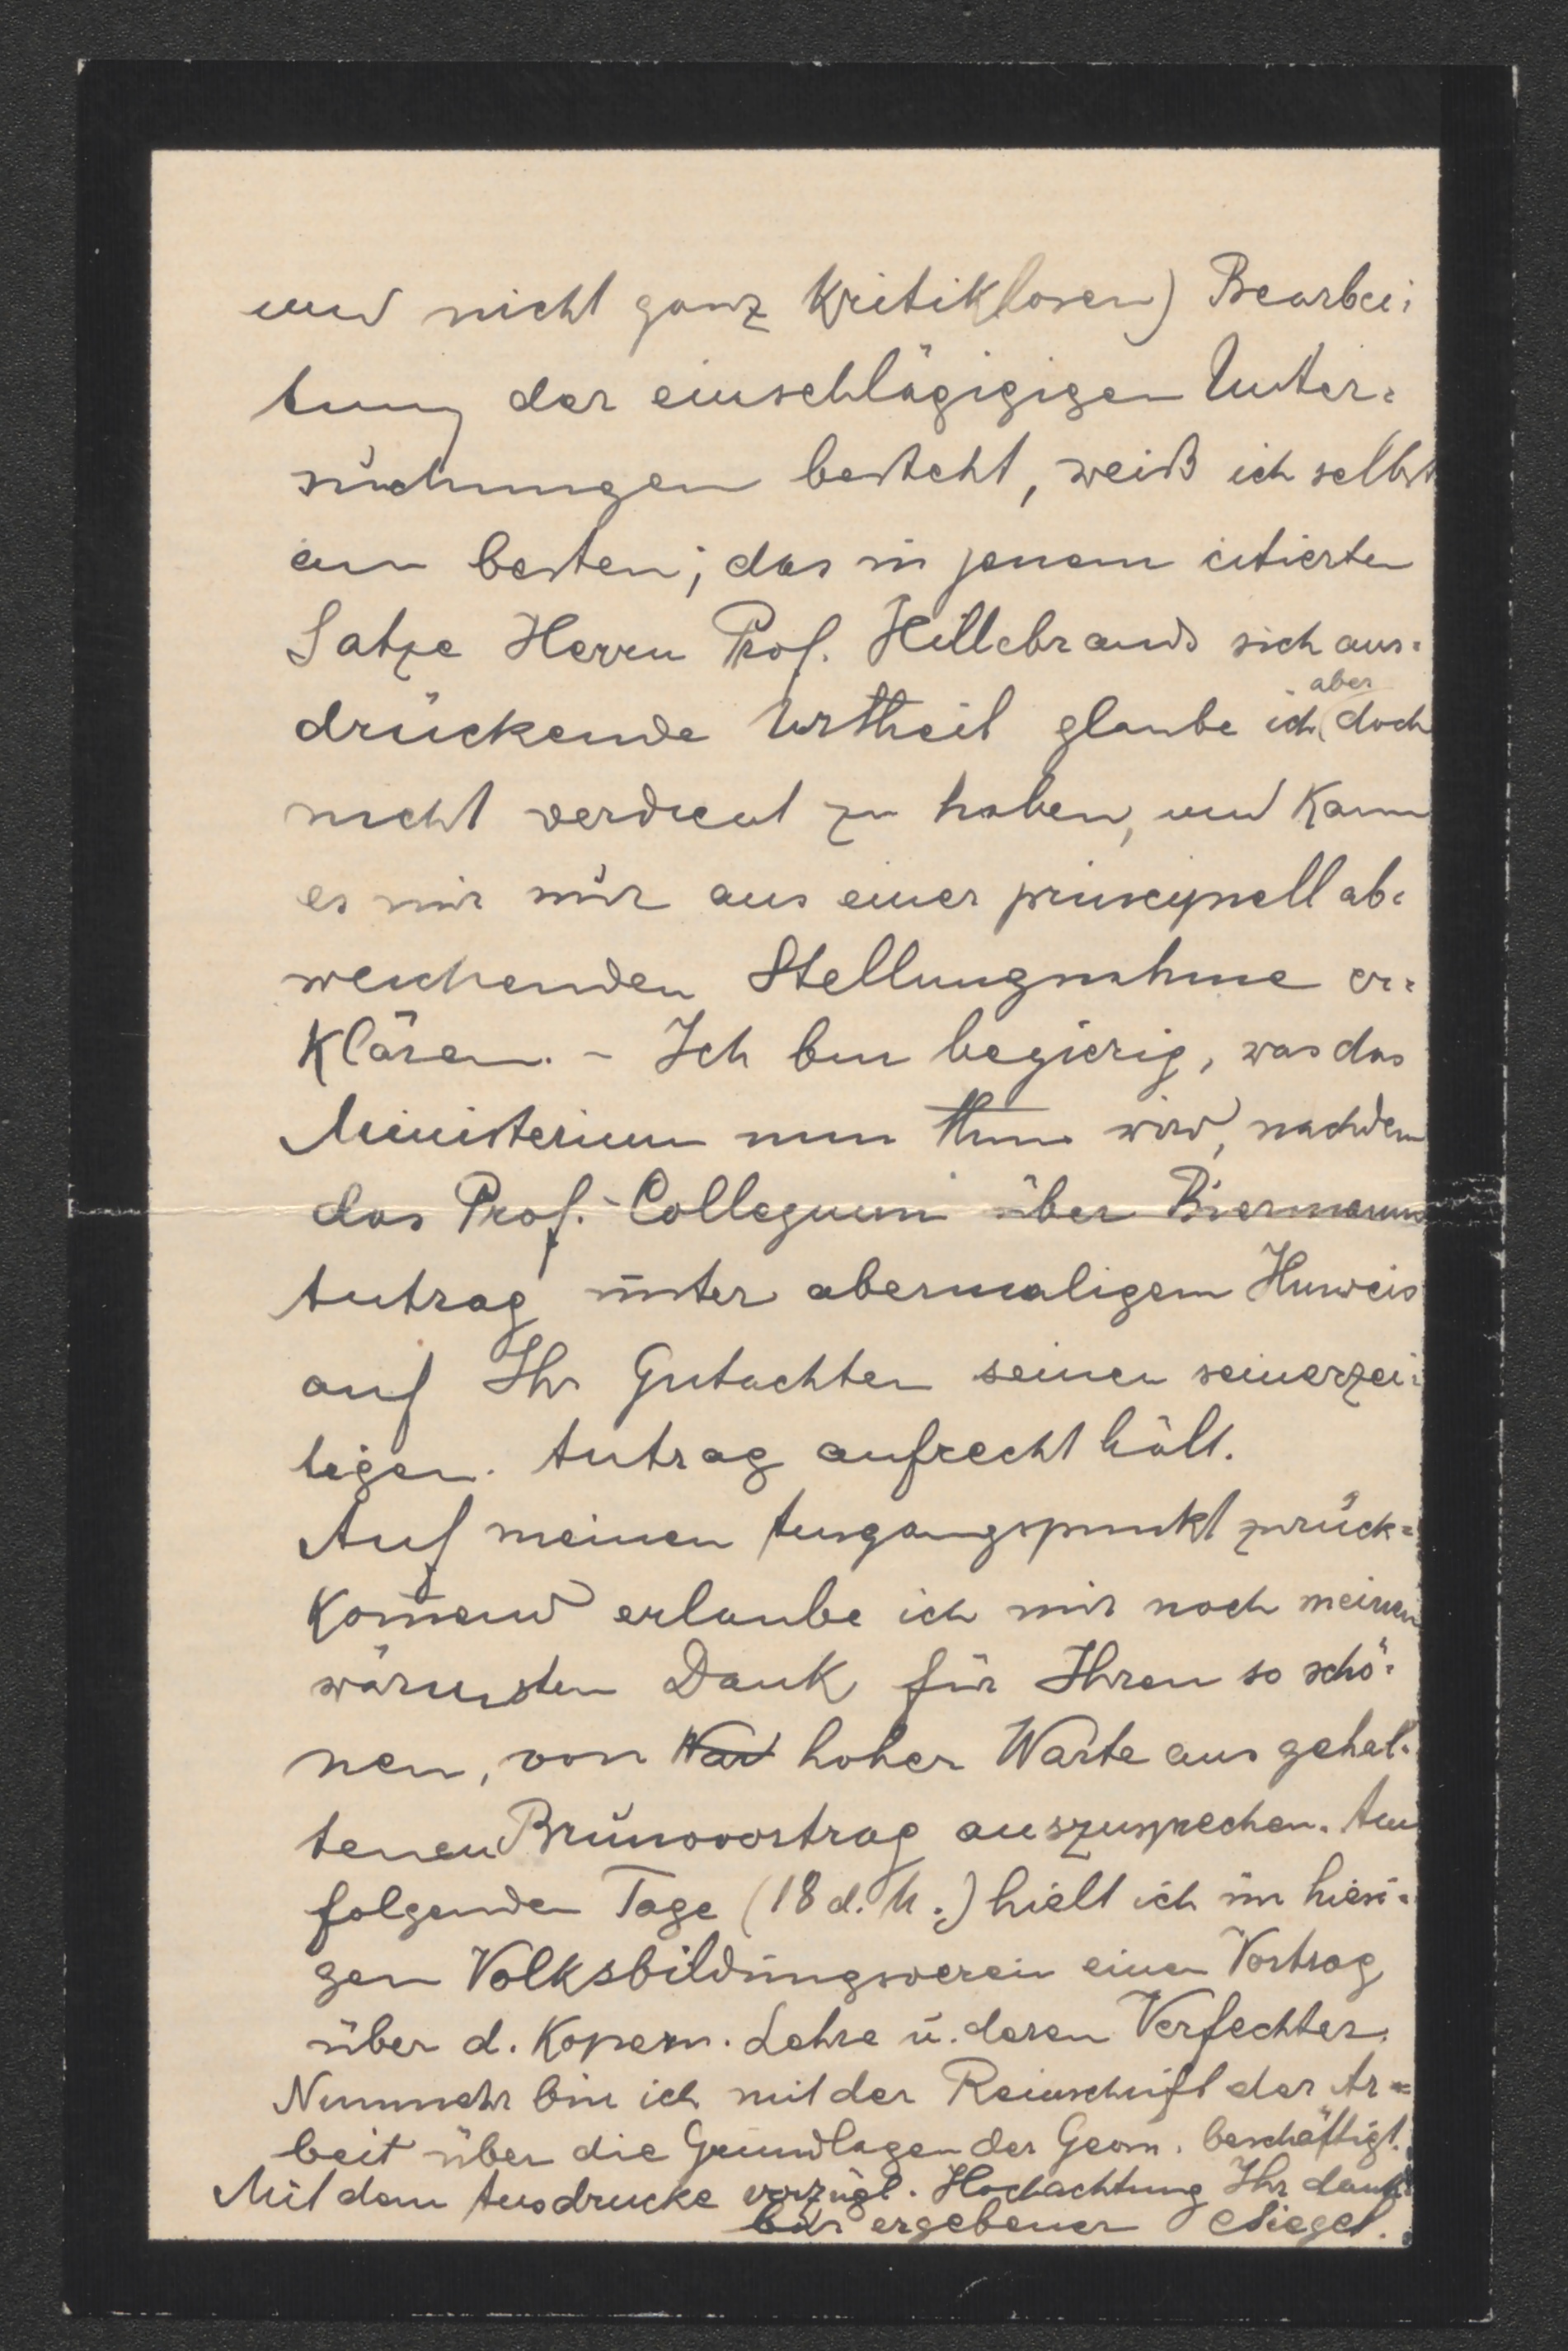 und nicht ganz kritiklosen) Bearbei:
tung der einschlägigigen Unter:
suchungen besteht, weiß ich selbst
am besten; das in jenem citierten
Satze Herrn Prof. Hillebrands sich aus:
drückende Urtheil glaube ich aber doch
nicht verdient zu haben, und kann
es mir nur aus einer principiell ab:
weichenden Stellungnahme er:
klären. – Ich bin begierig, was das
Ministerium nun thun wird, nachdem
das Prof.-Collegium über Biermanns
Antrag unter abermaligem Hinweis
auf Ihr Gutachten seinen seinerzei:
tigen Antrag aufrecht hält.
Auf meinen Ausgangspunkt zurück=
kom̄end erlaube ich mir noch meinen
wärmsten Dank für Ihren so schö:
nen, von War hoher Warte aus gehal:
tenen Brunovortrag auszusprechen. Am
folgenden Tage (18 d. M.) hielt ich im hiesi:
gen Volksbildungsverein einen Vortrag
über d. Kopern. Lehre u. deren Verfechter.
Nunmehr bin ich mit der Reinschrift der Ar=
beit über die Grundlagen der Geom. beschäftigt.
Mit dem Ausdrucke vorzügl. Hochachtung Ihr dank:
bar ergebener CSiegel.